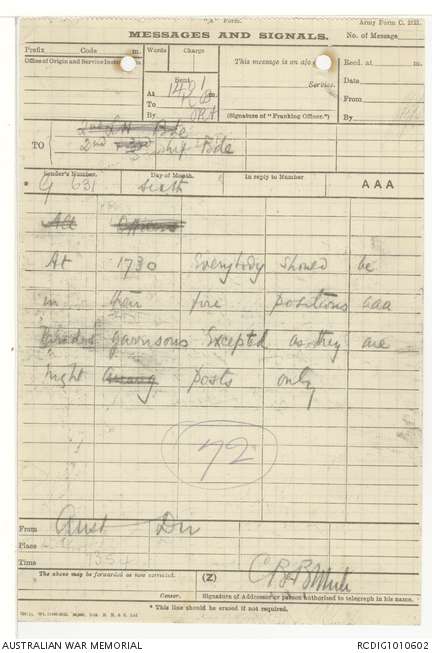 "A" Form.
Army Form C. 2121.
MESSAGES AND SIGNALS.
No. of Message
Prefix Code m.
Words Charge
This message is on a/c of:
Recd. at m.
Office of Origin and Service Instructions
Sent
Service.
Date
At 1421 m.
From
To
By
(Signature of "Franking Officer.")
By
TO
2nd LH Bde
2nd Bde
Sender's Number.
Day of Month.
In reply to Number
AAA
* G 631
sixth
All Officers
At 1730 Everybody should be
in their fire positions aaa
garrisons Excepted as they are
night posts only
72
From Aust Div
Place
Time 1354
The above may be forwarded as now corrected. (Z)
Censor.
Signature of Addressor or person authorised to telegraph in his name.
* This line should be erased if not required.
AUSTRALIAN WAR MEMORIAL
RCDIG1010602